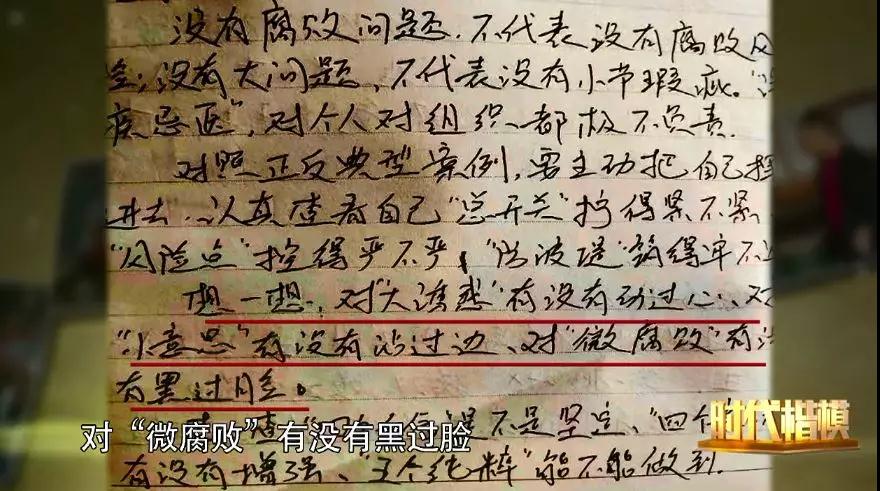 没有腐败问题,不代表没有腐败风
险;没有大问题,不代表没有小节瑕疵。"讳
疾忌医",对个人对组织都极不负责.
对照正反典型案例,要主动把自己摆
进去.认真查看自己"总开关"拧得紧不紧、
"风险点"控得严不严、"防波堤"筑得牢不
想一想,对"大诱惑"有没有动过心、对
"小意思"有没有沾过边、对"微腐败"有没
有黑过脸。
是不是坚定、"四个
有没有增强、"五个纯粹"能不能做到.
对“微腐败”有没有黑过脸
时代楷模